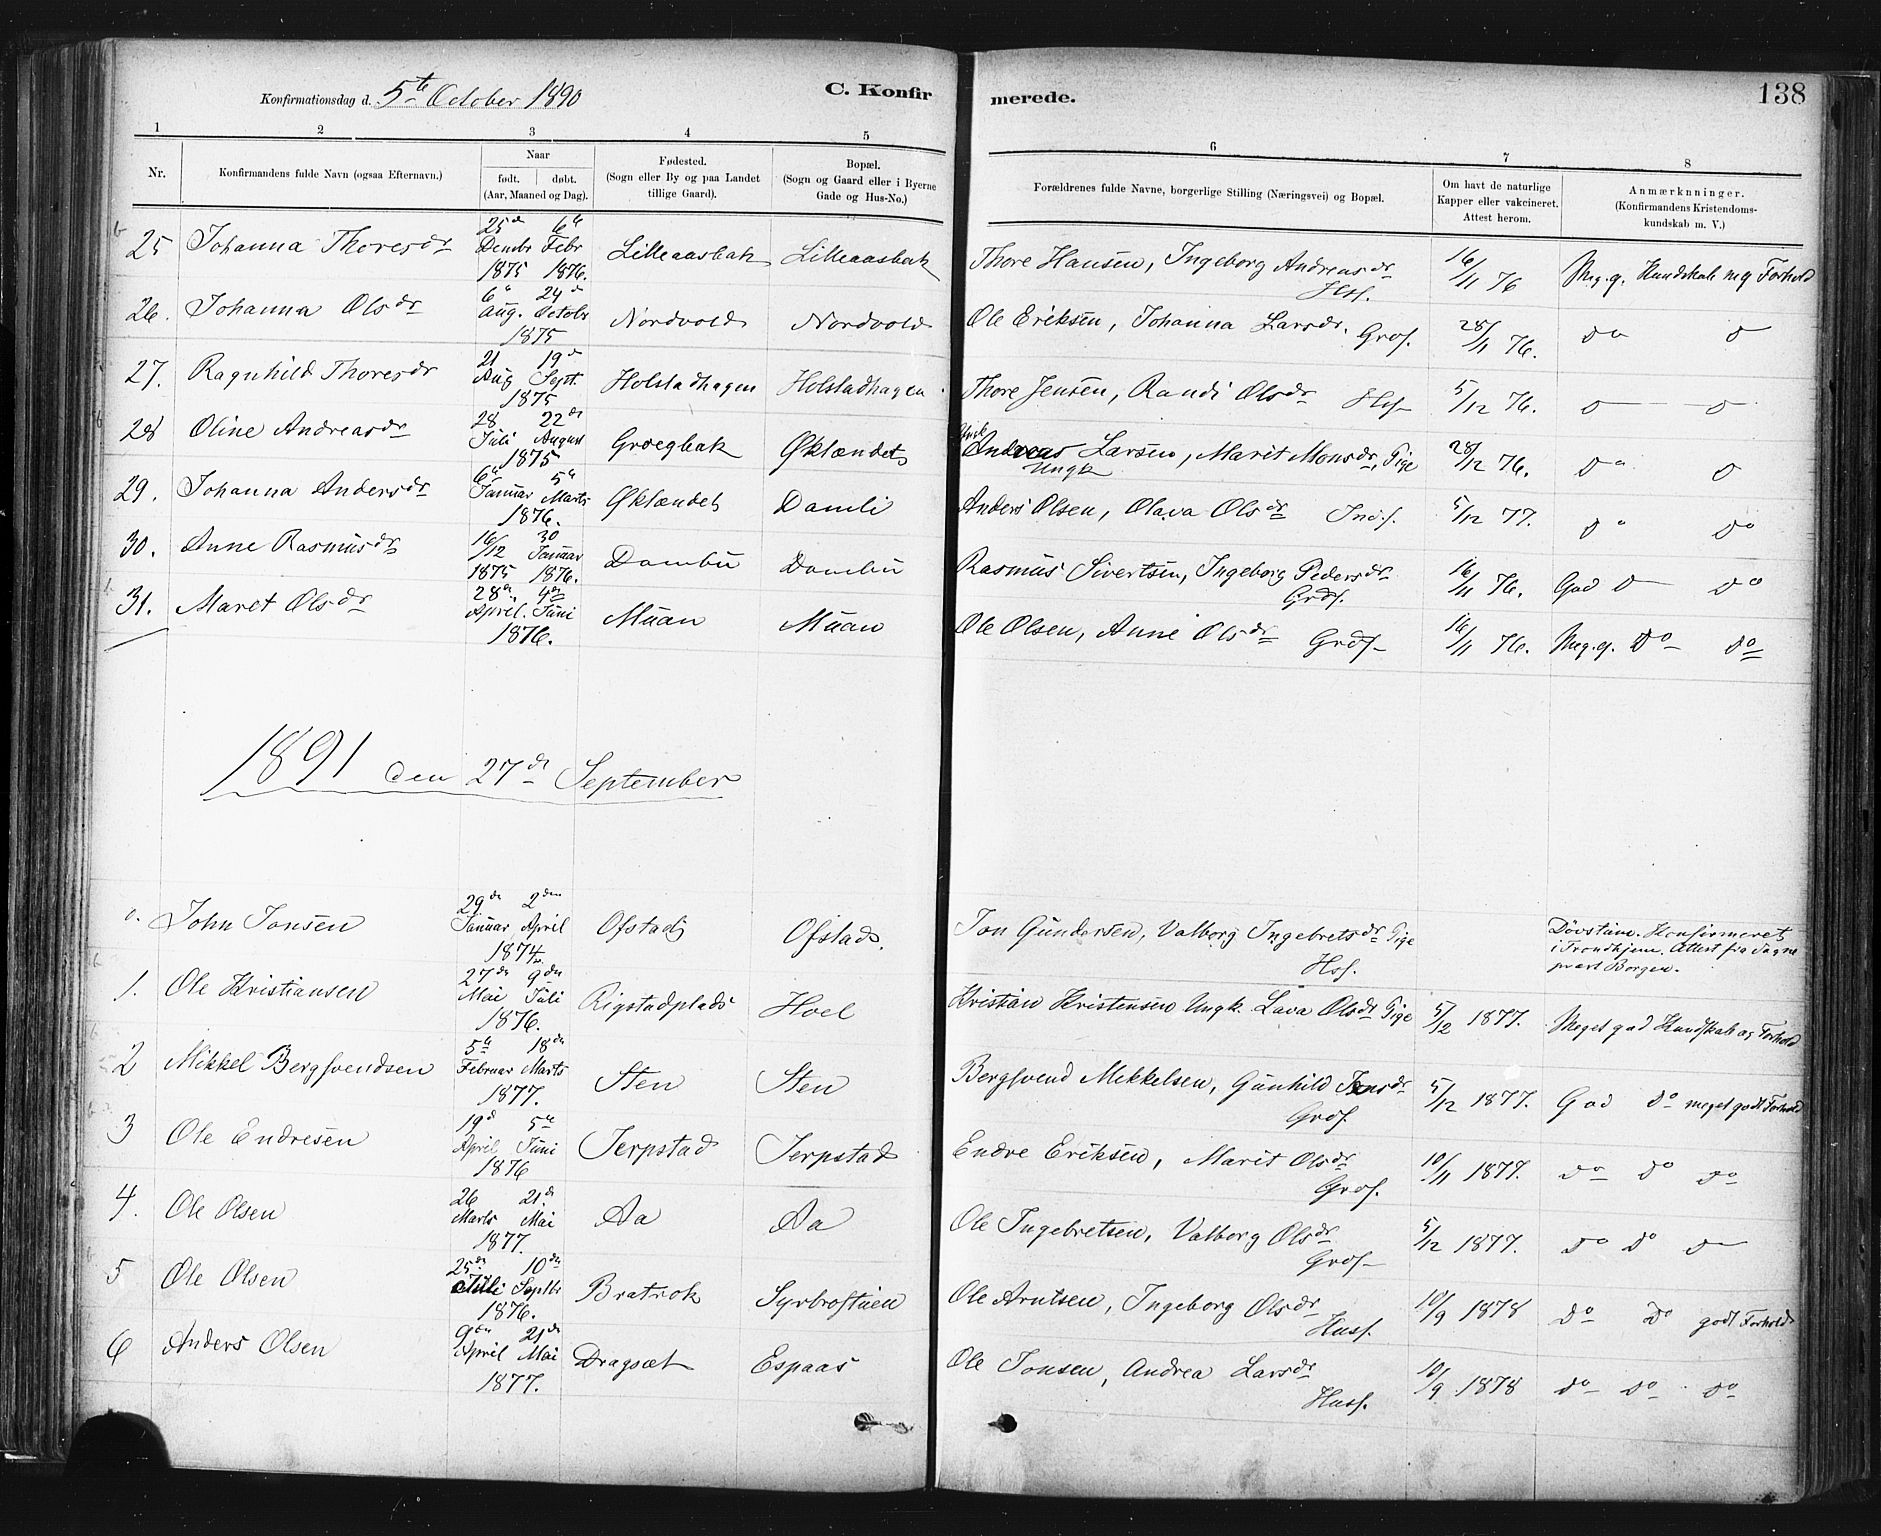 Konfirmationsdag d. 5te October 1890
C. Konfirmerede.
138
1 2 3 4 5 6 7 8
Nr.
Konfirmandens fulde Navn (ogsaa Efternavn.)
Naar født. døbt. (Aar, Maaned og Dag).
Fødested. (Sogn eller By og paa Landet tillige Gaard).
Bopæl. (Sogn og Gaard eller i Byerne Gade og Hus-No.)
Forældrenes fulde Navne, borgerlige Stilling (Næringsvei) og Bopæl.
Om havt de naturlige Kapper eller vakcineret. Attest herom.
Anmærkninger. (Konfirmandens Kristendomskundskab m. V.)
25 Johanna Thoresdr 25de Decmbr 1875 6te Febr 1876. Lilleaasbak Lilleaasbak Thore Hansen, Ingeborg Andreasdr Hsf. 16/11 76 Meg. g. Kundskab og Forhold
26. Johanna Olsdr 6te Aug. 24de Octobr 1875 Nordvold Nordvold Ole Eriksen, Johanna Larsdr. Grdf. 28/11 76. do do
27. Ragnhild Thoresdr 21 Aug 19de Sept. 1875 Holstadhagen Holstadhagen Thore Jensen, Randi Olsdr Hsf 5/12 76. do do
28 Oline Andreasdr 28 Juli 22de August 1875 Groegbak Øklændet Ungk Andreas Larsen, Marit Monsdr, Pige Ungk 28/12 76. do do
29. Johanna Andersdr 6te Januar 5te Marts 1876. Øklændet Damli Anders Olsen, Olava Olsdr Ind.f. 5/12 77. do do
30. Anne Rasmusdr 16/12 1875 30 Januar 1876. Dambu Dambu Rasmus Sivertsen, Ingeborg Pedersdr Grdf. 16/11 76. God do do
31. Maret Olsdr 28de April. 4de Juni 1876. Muan Muan Ole Olsen, Anne Olsdr Grdf 16/11 76. Meg. g. do do
1891 den 27de September
0. John Jonsen 29de Januar 2den April 1874. Ofstad Ofstad. Jon Gundersen, Valborg Ingebretsdr Pige Hsf. Døvstum. Konfirmeret i Trondhjem. Attest fra Sognepræst Borgen.
1. Ole Kristiansen 27de Mai 9den Juli 1876. Rigstadplads Hoel Kristian Kristensen Ungk. Lava Olsdr Pige 5/12 1877. Meget god Kundskab og Forhold
2 Mikkel Bergsvendsen 5te Februar 18de Marts 1877. Sten Sten Bergsvend Mikkelsen, Gunhild Jensdr Grdf. 5/12 1877. God do meget godt Forhold
3 Ole Endresen 19d April 5te Juni 1876 Jerpstad Jerpstad Endre Eriksen, Marit Olsdr Grdf. 10/11 1877. do do do
4. Ole Olsen 26 Marts 21de Mai 1877. Aa Aa Ole Ingebretsen, Valborg Olsdr Grdf 5/12 1877. do do do
5 Ole Olsen 25de Juli 10de Septbr 1876. Bratrok Syrbrøstuen Ole Arntsen, Ingeborg Olsdr Husf. 10/9 1878 do do godt Forhold
6 Anders Olsen 9de April 21de Mai 1877. Dragsæt Espaas Ole Jonsen, Andrea Larsdr Husf. 10/9 1878 do do do